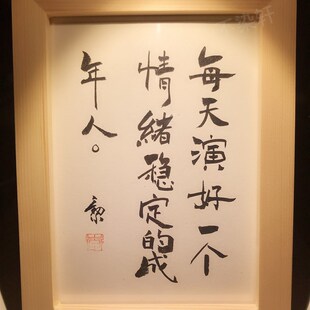 每天演好一个
情緒穩定的成
年人。